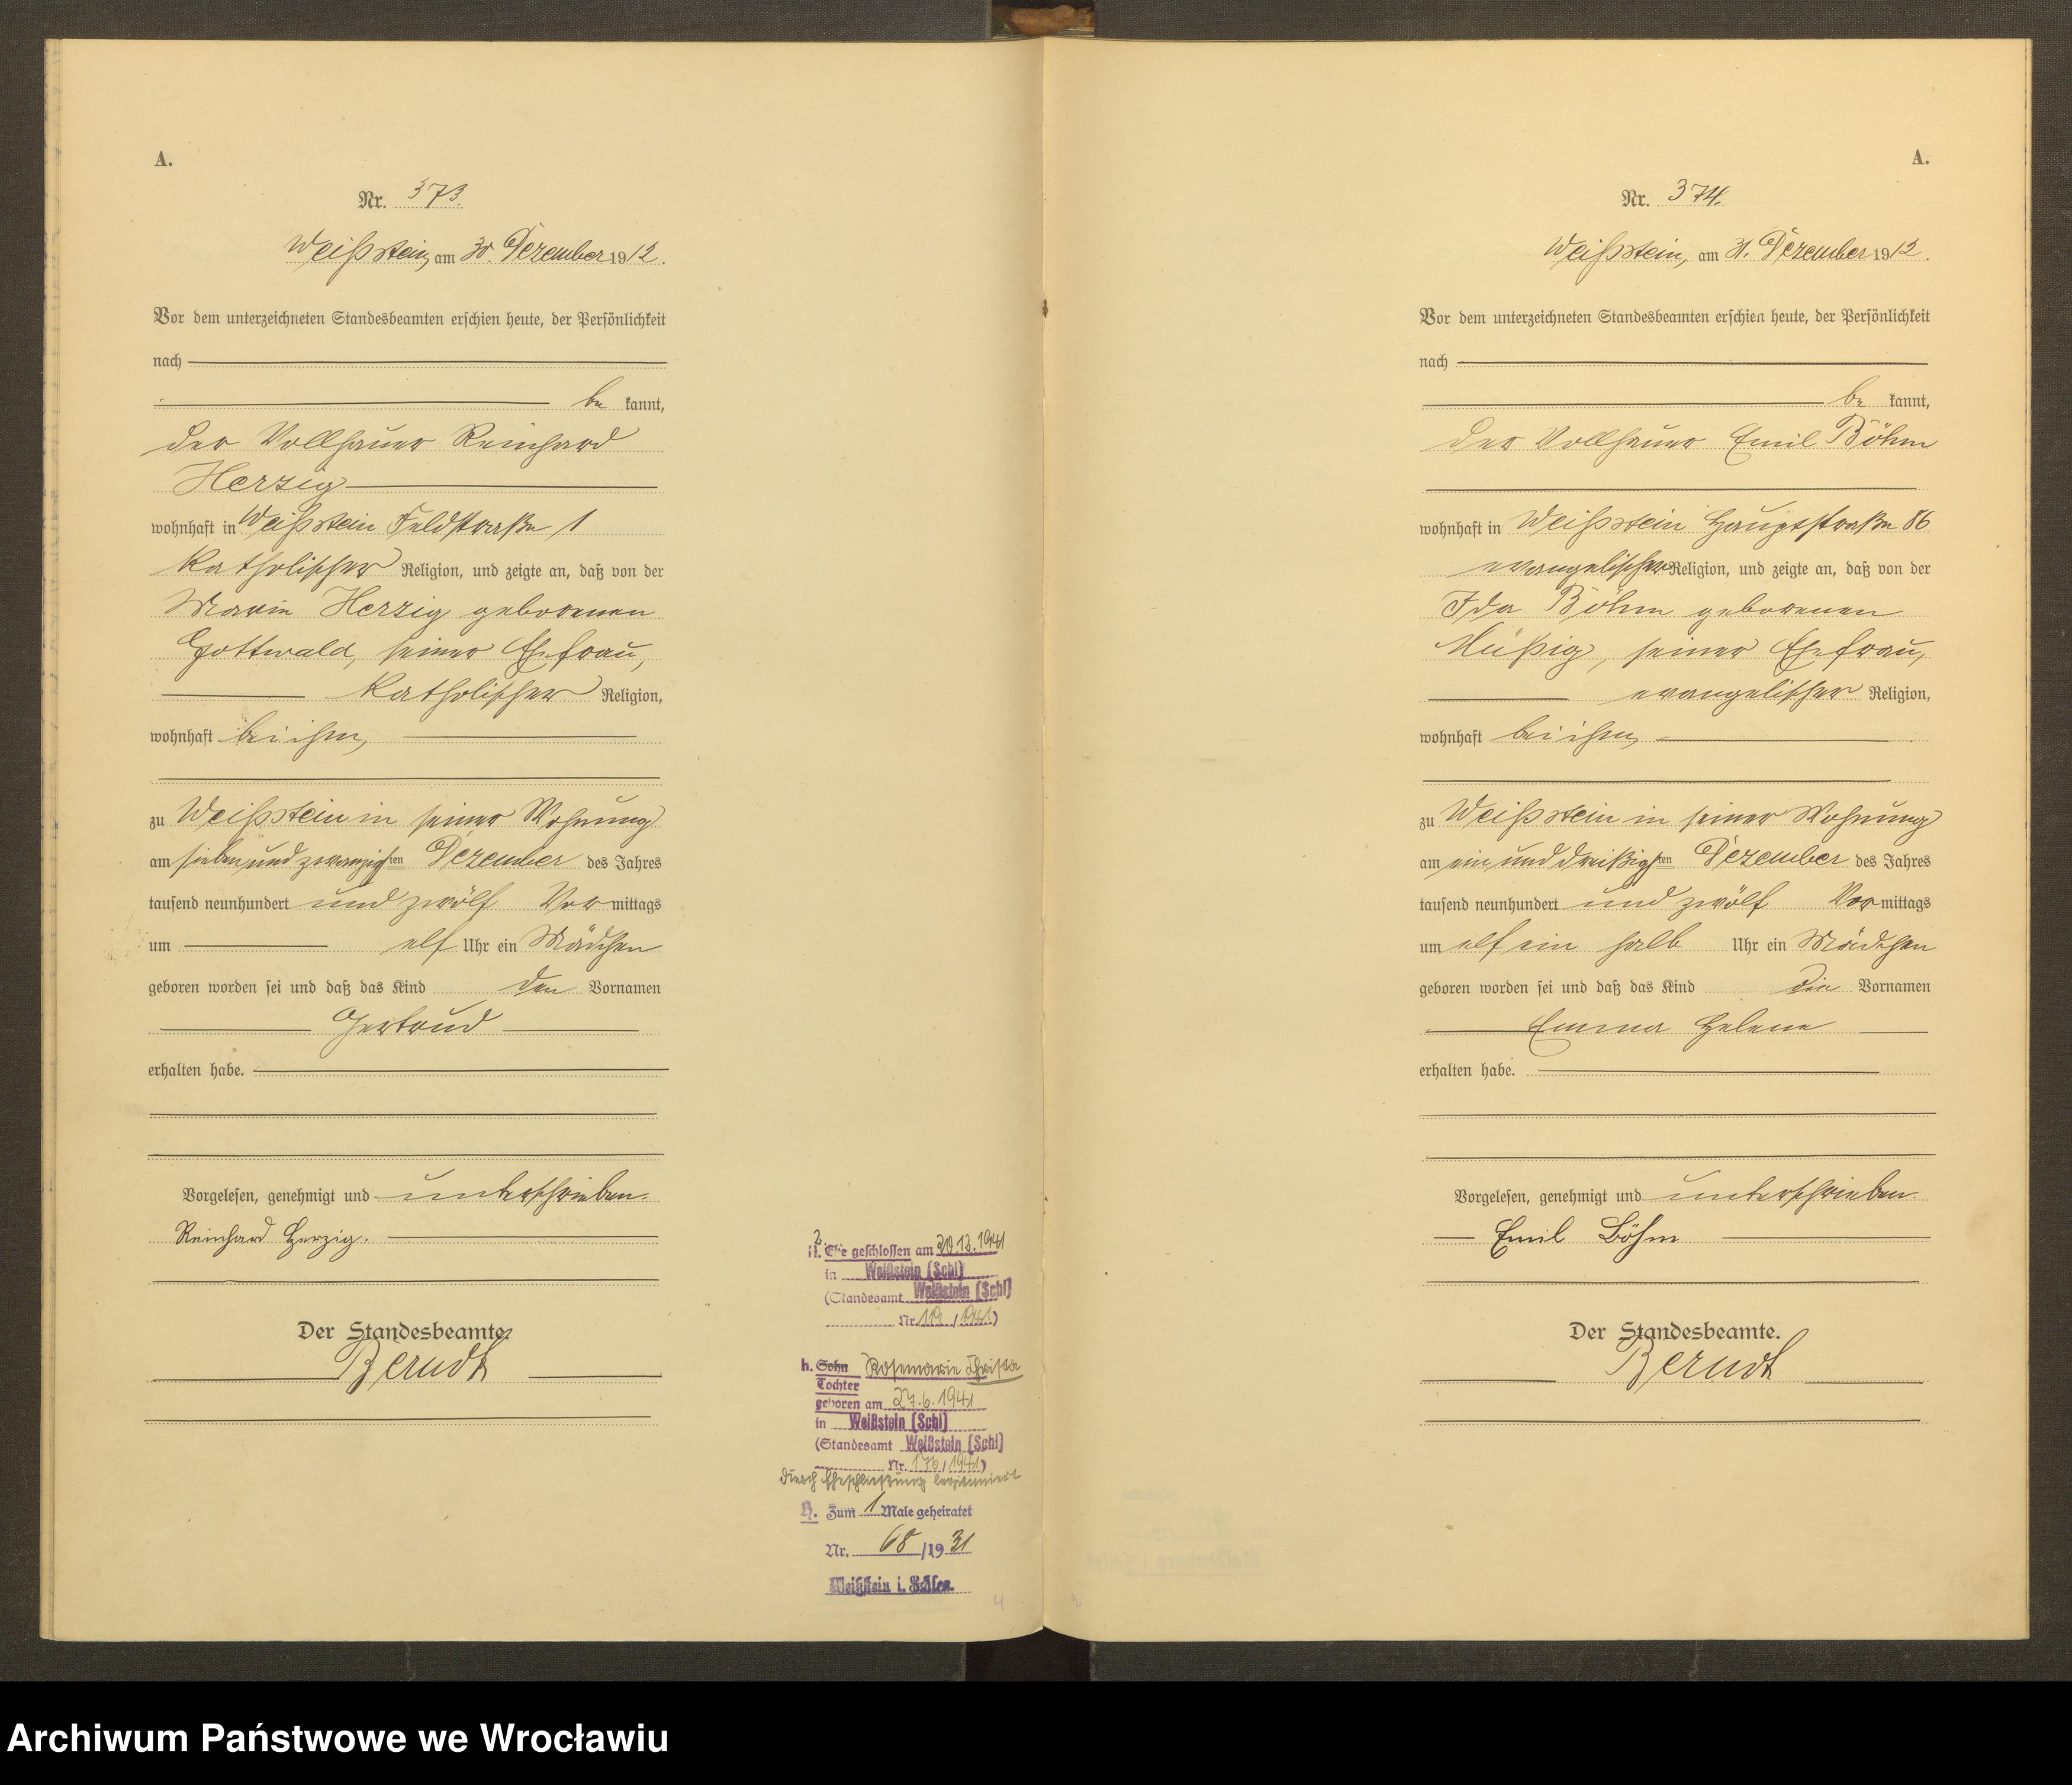 A.
Nr. 373.
Weißstein, am 30. Dezember 1912.
Vor dem unterzeichneten Standesbeamten erschien heute, der Persönlichkeit
nach
be kannt,
der Vollhauer Reinhard
Herzig
wohnhaft in Weißstein Feldstraße 1
katholischer Religion, und zeigte an, daß von der
Marie Herzig geborenen
Gottwald, seiner Ehefrau,
katholischer Religion,
wohnhaft bei ihm,
zu Weißstein in seiner Wohnung
am sieben und zwanzigsten Dezember des Jahres
tausend neunhundert und zwölf Vormittags
um elf Uhr ein Mädchen
geboren worden sei und daß das Kind den Vornamen
Gertrud
erhalten habe.
Vorgelesen, genehmigt und unterschrieben.
Reinhard Herzig.
Der Standesbeamte.
Berndt
2.
H. Ehe geschlossen am 20.12.1941
in Weißstein (Schl)
(Standesamt Weißstein (Schl)
Nr. 119/1941)
h. Sohn Rosemarie Christa
Tochter
geboren am 27.6.1941
in Weißstein (Schl)
(Standesamt Weißstein (Schl)
Nr. 176/1941)
durch Eheschließung legitimiert
H. Zum 1 Male geheiratet
Nr. 68/1931
Weißstein i. Schles.
4
A.
Nr. 374.
Weißstein, am 31. Dezember 1912.
Vor dem unterzeichneten Standesbeamten erschien heute, der Persönlichkeit
nach
be kannt,
der Vollhauer Emil Böhm
wohnhaft in Weißstein Hauptstraße 86
evangelischer Religion, und zeigte an, daß von der
Ida Böhm geborenen
Müßig, seiner Ehefrau,
evangelischer Religion,
wohnhaft bei ihm,
zu Weißstein in seiner Wohnung
am ein und dreißigsten Dezember des Jahres
tausend neunhundert und zwölf Vormittags
um elf ein halb Uhr ein Mädchen
geboren worden sei und daß das Kind die Vornamen
Emma Helene
erhalten habe.
Vorgelesen, genehmigt und unterschrieben
Emil Böhm
Der Standesbeamte.
Berndt
Archiwum Państwowe we Wrocławiu